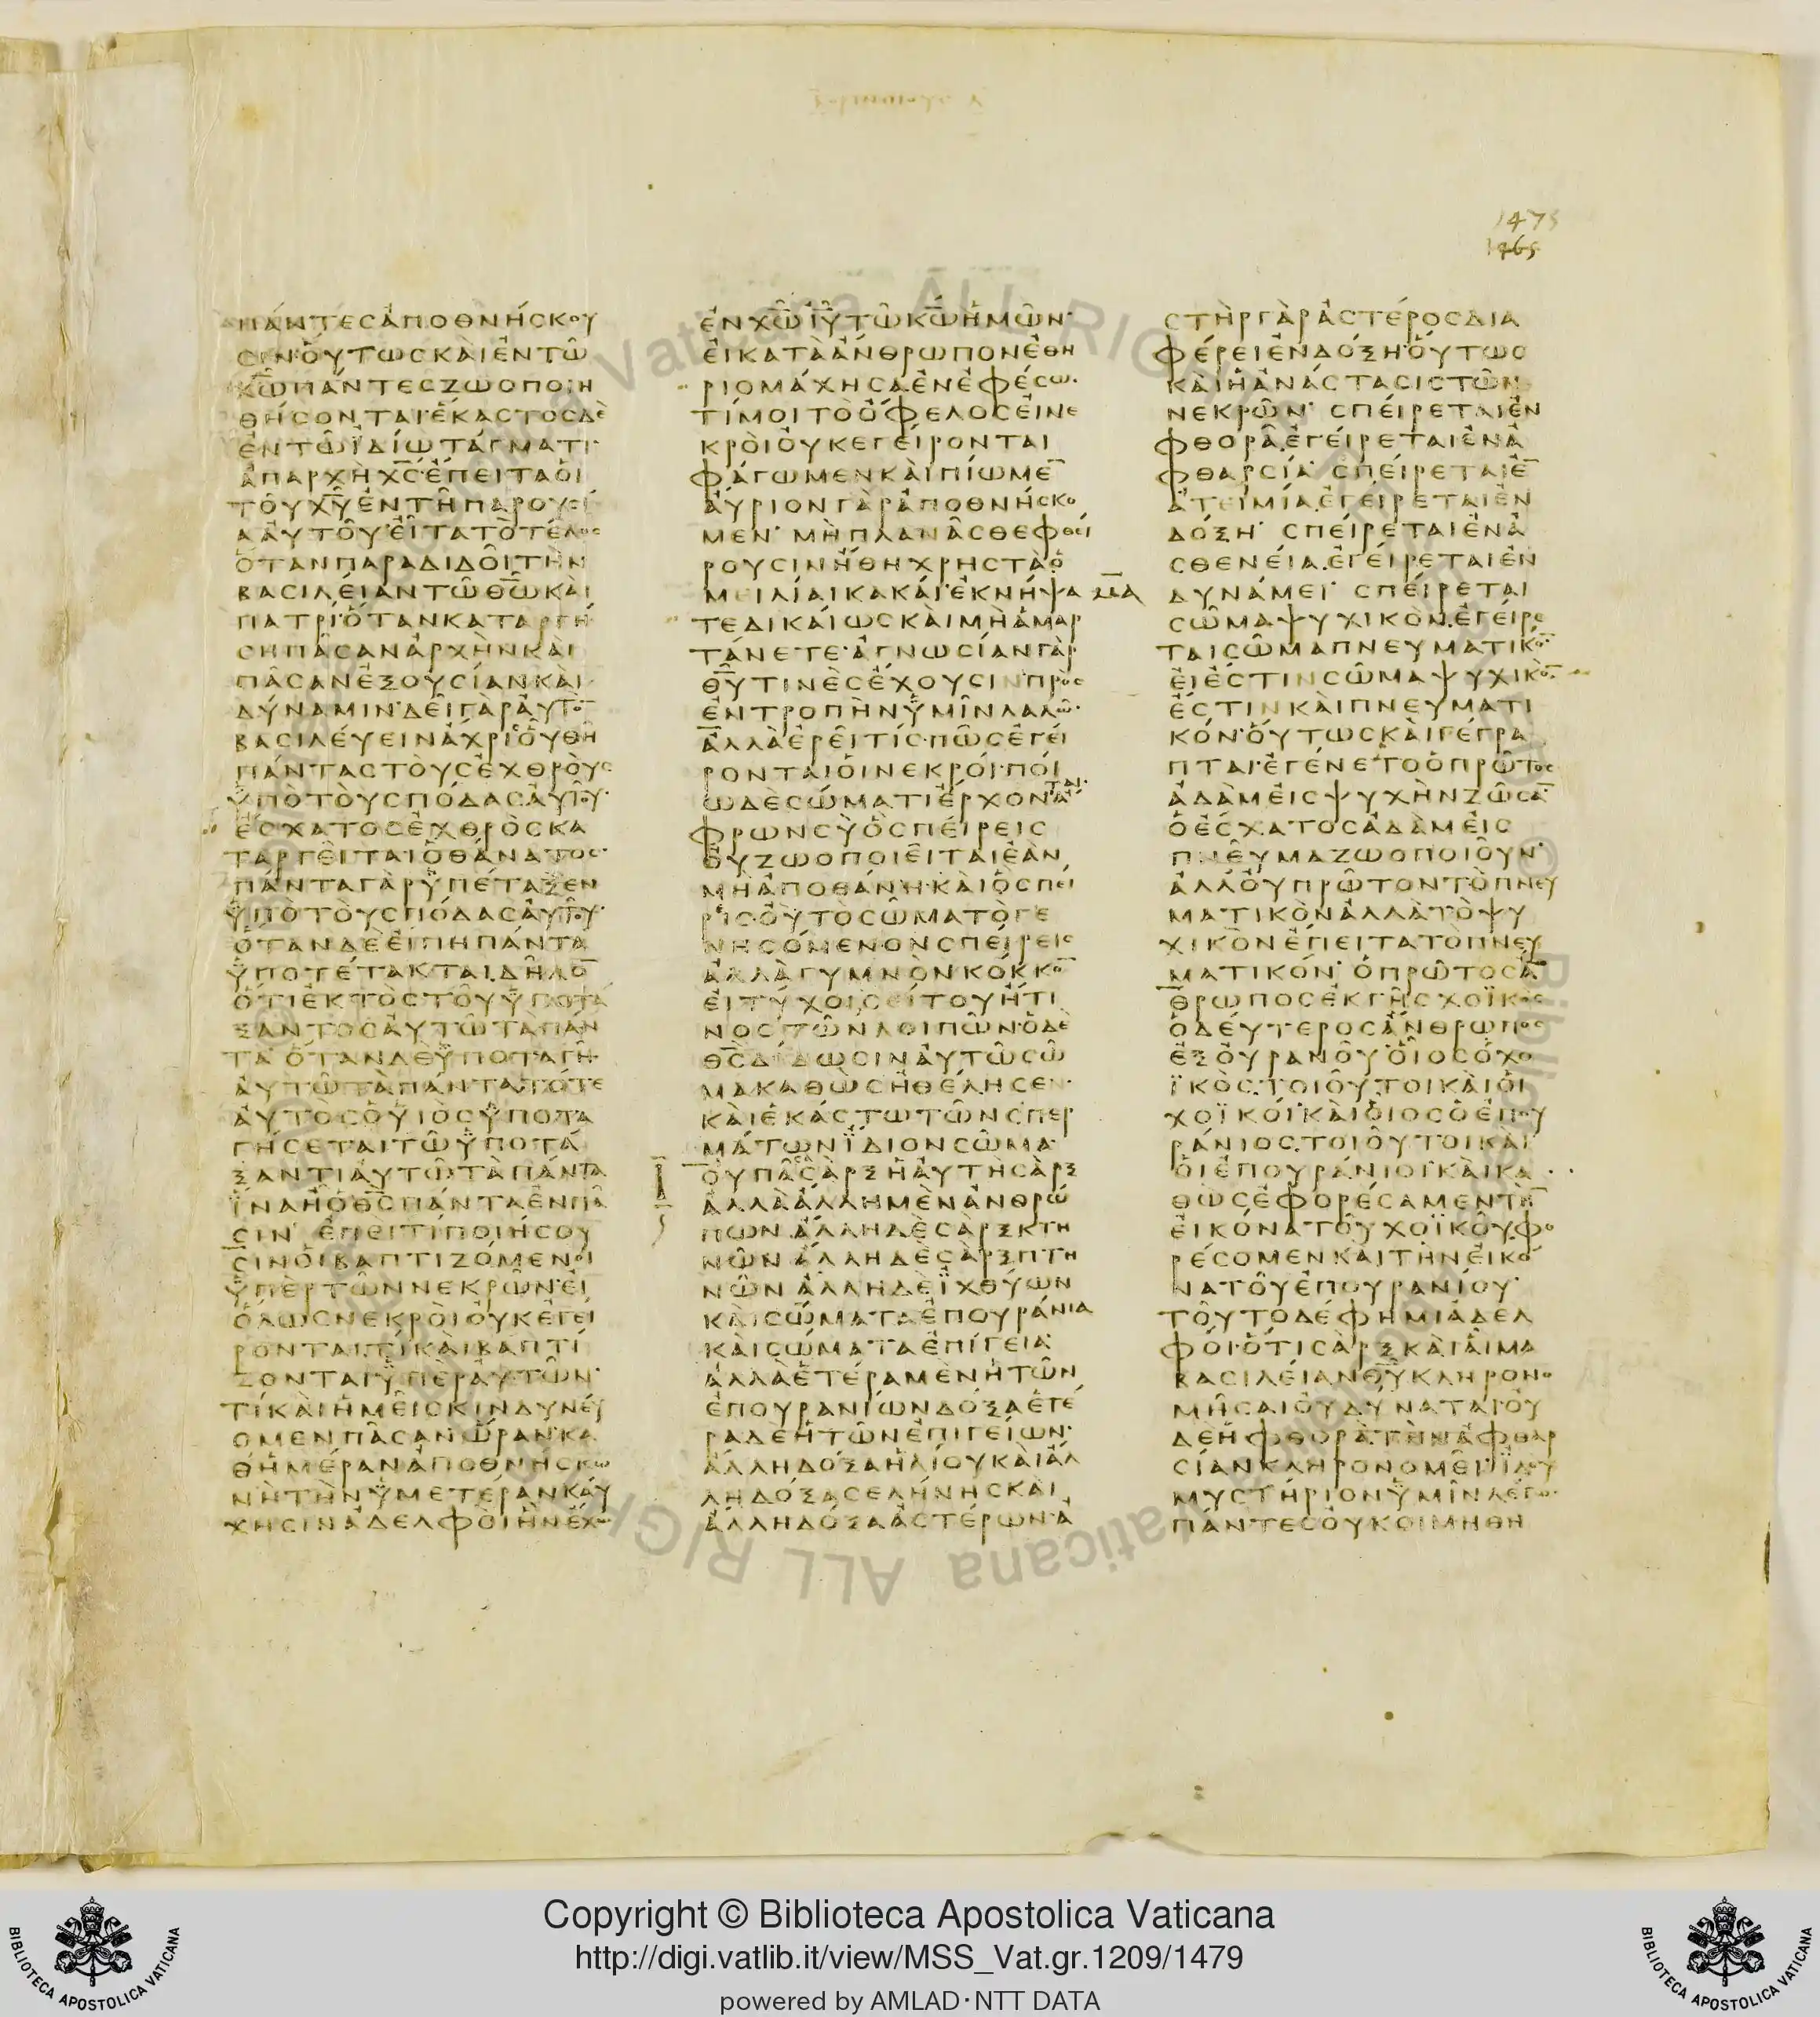 1475
1465
πάντεσἀποθνήσκου
σιν·ὅυτωσκὰιἐντῶ
χῶ̅πάντεσζωοποιη
θήσονται·ἕκαστοσδὲ
ἐντῶϊδίωτάγματι·
ἀπαρχὴχ̅σ̅·ἔπειταὁι
τοῦχ̅υ̅ἐντῆπαρουσί
ααὐτοῦ·εἶτατὸτέλοσ
ὅτανπαραδιδοῖτὴν
βασιλείαντῶθ̅ω̅καὶ
πατρί·ὅτανκαταργή
σηπᾶσανἀρχὴνκαὶ
πᾶσανἐξουσίανκαὶ
δύναμιν·δεῖγὰραὐτὸ̅
βασιλεύεινἄχριοὗθῆ
πάνταστοὺσἐχθροὺσ
ὑπὸτοὺσπόδασαὐτοῦ·
ἔσχατοσἐχθρὸσκα
ταργεῖταιὁθάνατοσ·
πάνταγὰρὑπέταξεν
ὑπὸτοὺσπόδασαὐτοῦ·
ὅτανδὲεἴπηπάντα
ὑποτέτακται.δῆλο̅
ὅτιἐκτὸστοῦὑποτά
ξαντοσαὐτῶτὰπάν
τα·ὅτανδὲὑποταγῆ
αὐτῶτὰπάντα.τότε
αὐτὸσὁυἱὸσὑποτα
γήσεταιτῶὑποτά
ξαντιαὐτῶτὰπάντα
ἵναἦὁθ̅σ̅πάνταἐνπᾶ
σιν· ἐπεὶτίποιήσου
σινοἱβαπτιζόμενοι
ὑπὲρτῶννεκρῶν·εἰ
ὅλωσνεκροὶοὐκἐγεί
ρονται.τίκαὶβαπτί
ζονταιὑπὲραὐτῶν·
τίκαὶἡμεῖσκινδυνεύ
ομενπᾶσανὥραν·κα
θἡμέρανἀποθνήσκω
νὴτὴνὑμετέρανκαύ
χησινἀδελφοίἣνἔχω
ἐνχ̅ω̅ἰ̅υ̅τῶκ̅ω̅ἡμῶν·
εἰκατὰἄνθρωπονἐθη
ριομάχησαἐνἐφέσω·
τίμοιτὸὄφελοσεἰνε
κροὶοὐκεγείρονται
φάγωμενκαὶπίωμε̅
αὔριονγὰρἀποθνήσκο
μεν· μὴπλανᾶσθεφθεί
ρουσινἤθηχρηστὰὁ
μειλίαικακαί·ἐκνήψα
τεδικαίωσκαὶμὴἁμαρ
τάνετε·ἀγνωσίανγὰρ
θ̅υ̅τινὲσἔχουσιν·πρὸσ
ἐντροπὴνὑμῖνλαλῶ·
ἀλλὰἐρεῖτίσ·πῶσἐγεί
ρονταιοἱνεκροί·ποί
ωδὲσώματιἔρχονται·ἄ
φρωνσὺὃσπείρεισ
οὐζωοποιεῖταιἐὰν
μὴἀποθάνη·καὶὃσπεί
ρισ·οὐτὸσῶματὸγε
νησόμενονσπείρεισ
ἀλλὰγυμνὸνκόκκο̅
εἰτύχοισείτουἤτι
νοστῶνλοιπῶν·ὁδὲ
θ̅σ̅δίδωσιναὐτῶσῶ
μακαθὼσἠθέλησεν·
καὶἑκάστωτῶνσπερ
μάτωνἴδιονσῶμα·
οὐπᾶσσὰρξἡαὐτὴσὰρξ
ἀλλὰἄλλημὲνἀνθρώ
πων.ἄλληδὲσὰρξκτη
νῶνἄλληδὲσὰρξπτη
νῶνἄλληδὲἰχθύων
καὶσώματαἐπουράνια
καὶσώματαἐπίγεια·
ἀλλὰἑτέραμὲνἡτῶν
ἐπουρανίωνδόξαἑτέ
ραδεἡτῶνἐπιγείων·
ἄλληδόξαἡλίουκαὶἄλ
ληδόξασελήνησκαὶ
ἄλληδόξαἀστέρων·ἀ
μ̅α̅
στὴργὰρἀστέροσδια
φέρειἐνδόξη·οὕτωσ
καὶἡἀνάστασιστῶν
νεκρῶν· σπείρεταιἐν
φθορᾶ.ἐγείρεταιἐνἀ
φθαρσία· σπείρεταιἐ̅
ἀτειμία.ἐγείρεταιἐν
δόξη· σπείρεταιἐνἀ
σθενεία.ἐγείρεταιἐν
δυνάμει· σπείρεται
σῶμαψυχικὸν.ἐγείρε
ταισῶμαπνευματικό̅·
εἰἔστινσῶμαψυχικὸ̅·
ἔστινκαὶπνευματι
κόν·οὕτωσκαὶγέγρα
πται·ἐγένετοὁπρῶτοσ
ἀδὰμεἰσψυχὴνζῶσα̅
ὁἔσχατοσἀδὰμεἰσ
πνεῦμαζωοποιοῦν·
ἀλλ'οὐπρῶτοντὸπνευ
ματικὸνἀλλὰτὸψυ
χικὸνἔπειτατὸπνευ
ματικόν· ὁπρῶτοσἄ̅
θρωποσἐκγῆσχοϊκὸσ
ὁδεύτεροσἄνθρωποσ
ἐξοὐρανοῦ·οἷοσὁχο
ϊκὸσ.τοιοῦτοικαὶοἱ
χοϊκοί·καὶοἷοσὁἐπου
ράνιοσ.τοιοῦτοικαὶ
οἱἐπουράνιοι·καὶκα
θὼσἐφορέσαμεντὴ̅
εἰκόνατοῦχοϊκοῦ.φο
ρέσομενκαὶτὴνεἰκό
νατοῦἐπουρανίου·
τοῦτοδέφημιἀδελ
φοί·ὅτισὰρξκαὶαἷμα
βασιλείανθ̅υ̅κληρονο
μῆσαιοὐδύναται·οὐ
δὲἡφθορὰ.τὴνἀφθαρ
σίανκληρονομεῖ·ἰδοὺ
μυστήριονὑμῖνλέγω·
πάντεσοὐκοιμηθη
Copyright © Biblioteca Apostolica Vaticana
http://digi.vatlib.it/view/MSS_Vat.gr.1209/1479
powered by AMLAD·NTT DATA
BIBLIOTECA APOSTOLICA VATICANA
BIBLIOTECA APOSTOLICA VATICANA